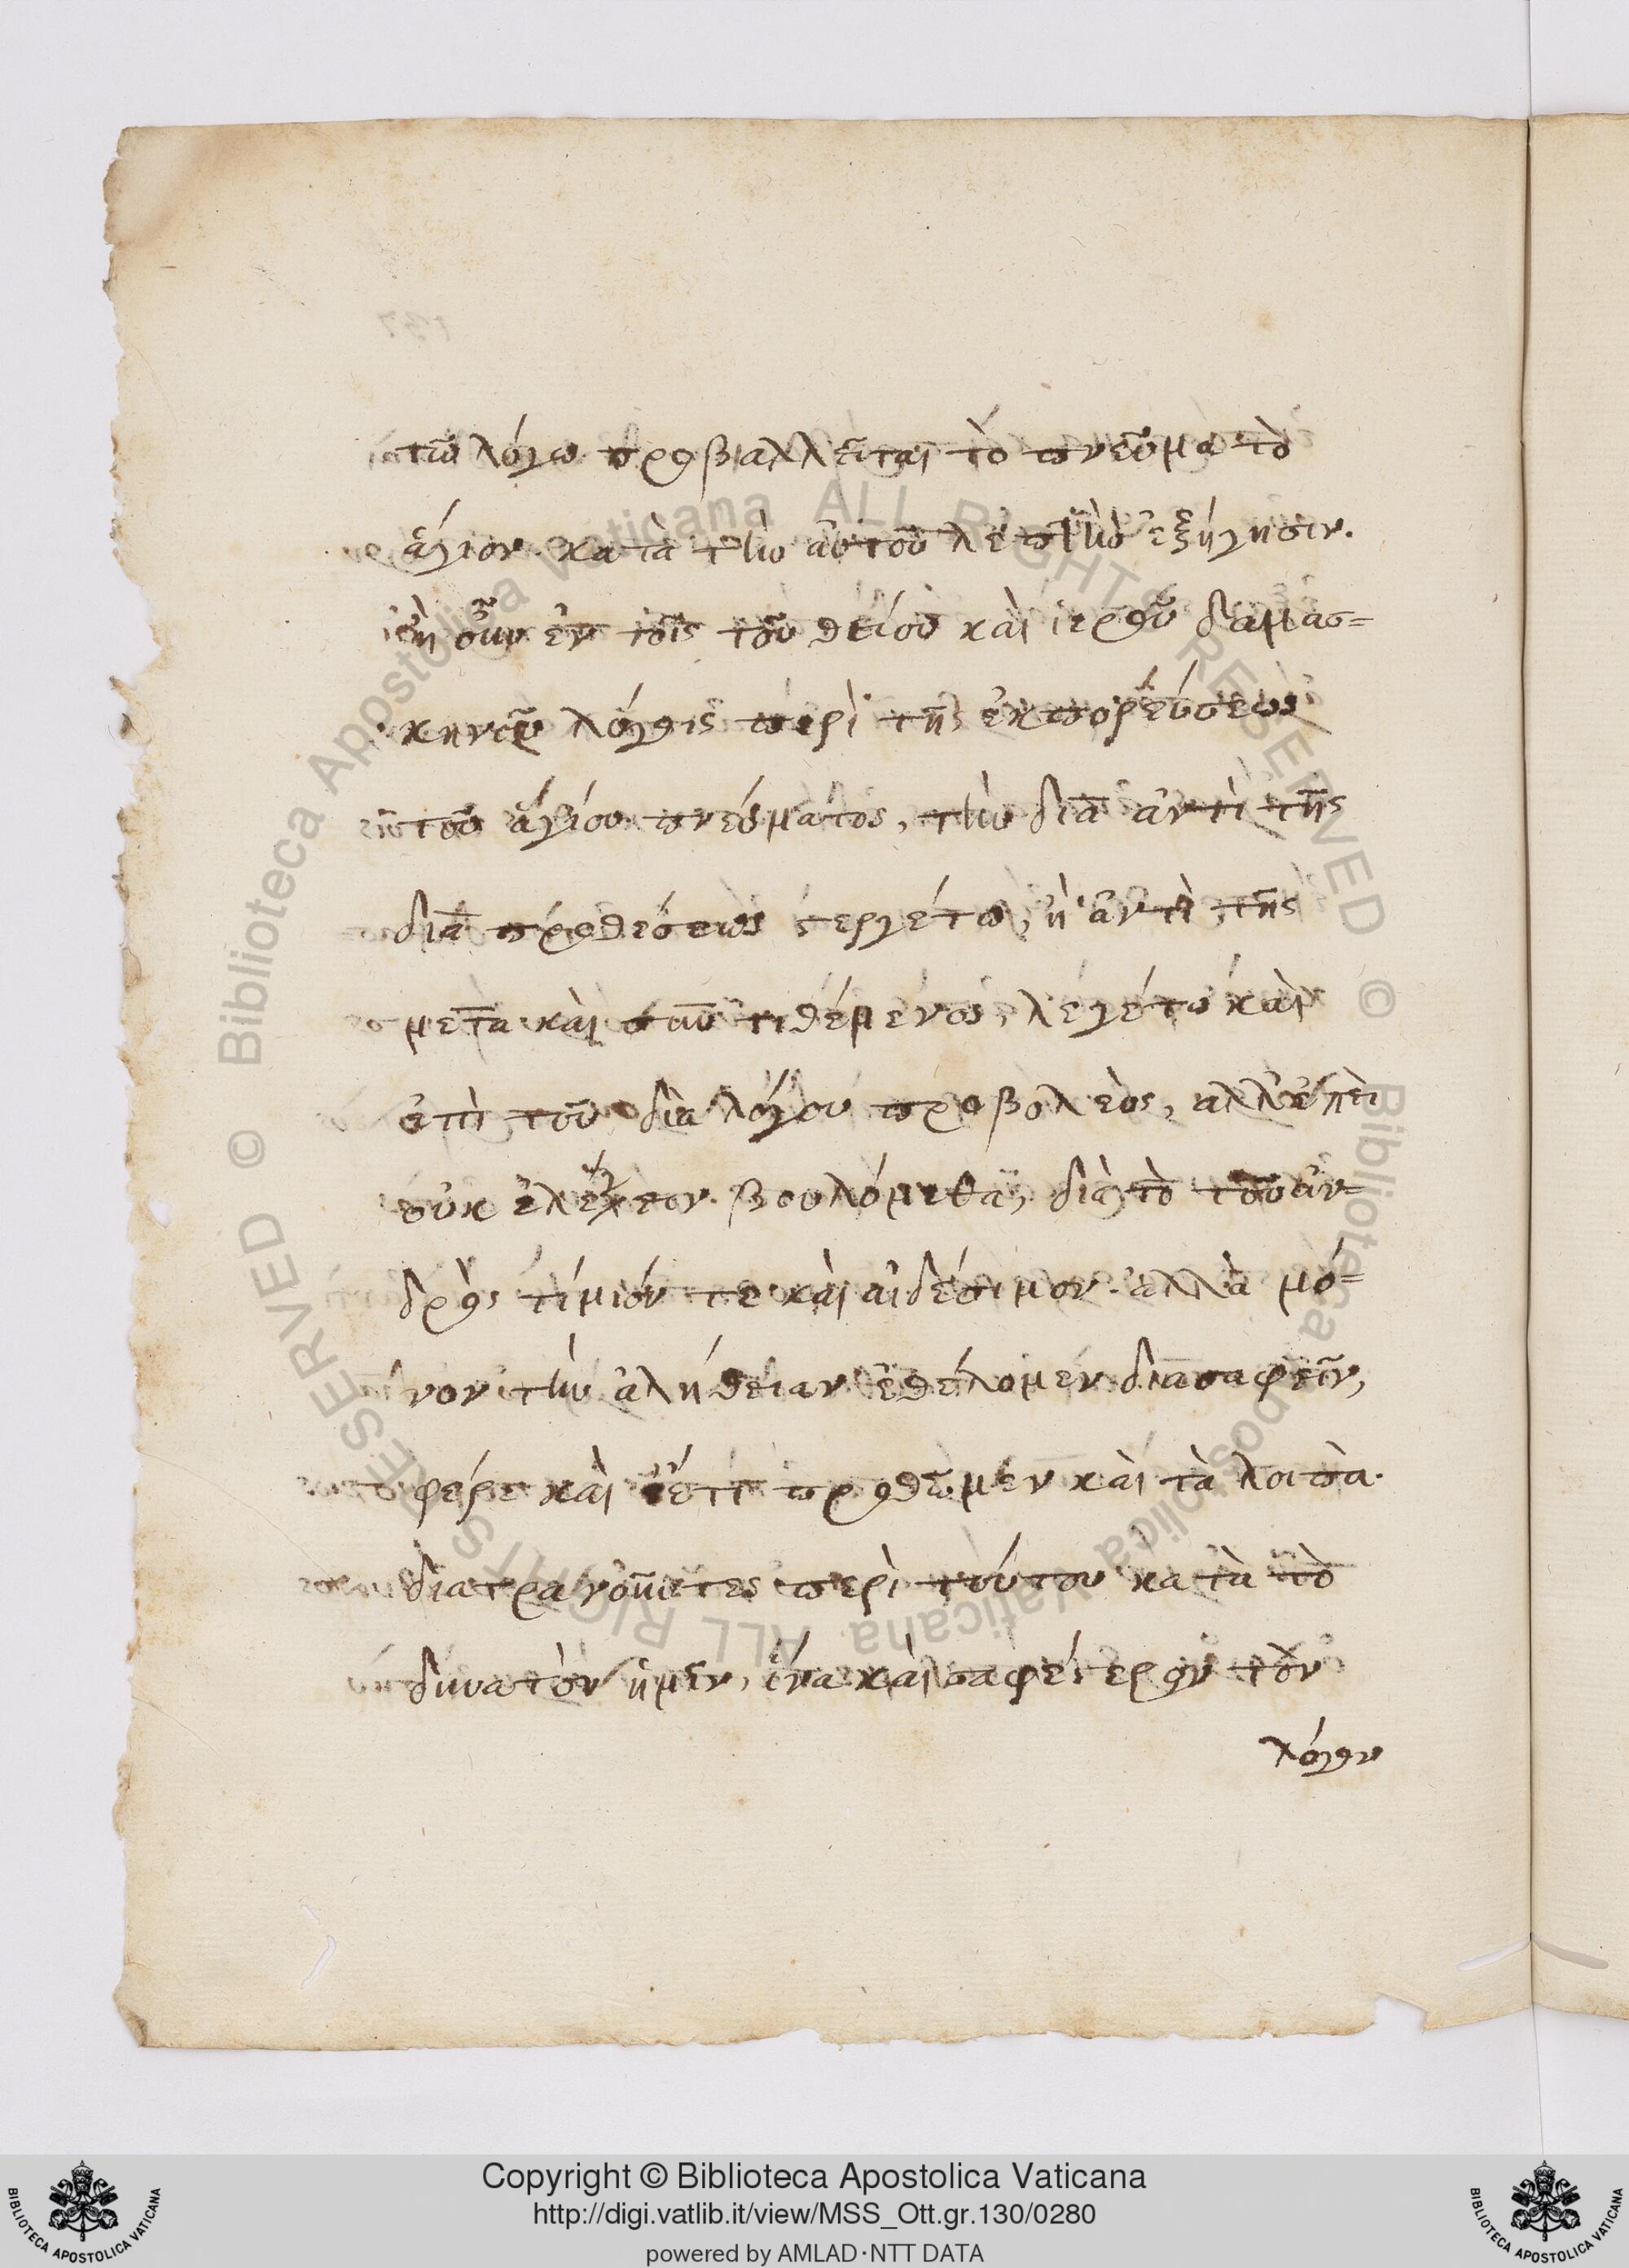 τῶ λόγω προβαλλεῖται τὸ πνεῦμα τὸ
ἅγιον. κατὰ τὴν αὐτοῦ λεπτὴν ἐξήγησιν.
ἢ οὖν ἐν τοῖς τοῦ θείου καὶ ἱεροῦ δαμασ=
κηνοῦ λόγοις περὶ τῆς ἐκπορεύσεως
τοῦ ἁγίου πνεύματος, τὴν διὰ ἀντὶ τῆς
διὰ προθέσεως στεργέτω, ἢ ἀντὶ τῆς
μετὰ καὶ σὺν τιθέμενος, λεγέτω κἀν
ἐπὶ τοῦ διὰ λόγου προβολεὺς, ἀλλ' ἐπεὶ
οὐκ ἐλέγχειν βουλόμεθα, διὰ τὸ τοῦ ἀν=
δρὸς τίμιόν τε καὶ αἰδέσιμον. ἀλλὰ μό=
νον τὴν ἀλήθειαν ἐθέλομεν διασαφεῖν,
φέρε καὶ ἔτι προθῶμεν καὶ τὰ λοιπὰ.
διατρανοῦντες περὶ τούτου κατὰ τὸ
δυνατὸν ἡμῖν, ἵνα καὶ σαφέστερον τὸν
λόγον
Copyright © Biblioteca Apostolica Vaticana
http://digi.vatlib.it/view/MSS_Ott.gr.130/0280
powered by AMLAD·NTT DATA
BIBLIOTECA APOSTOLICA VATICANA
BIBLIOTECA APOSTOLICA VATICANA
© Biblioteca Apostolica Vaticana ALL RIGHTS RESERVED © Biblioteca Apostolica Vaticana ALL RIGHTS RESERVED